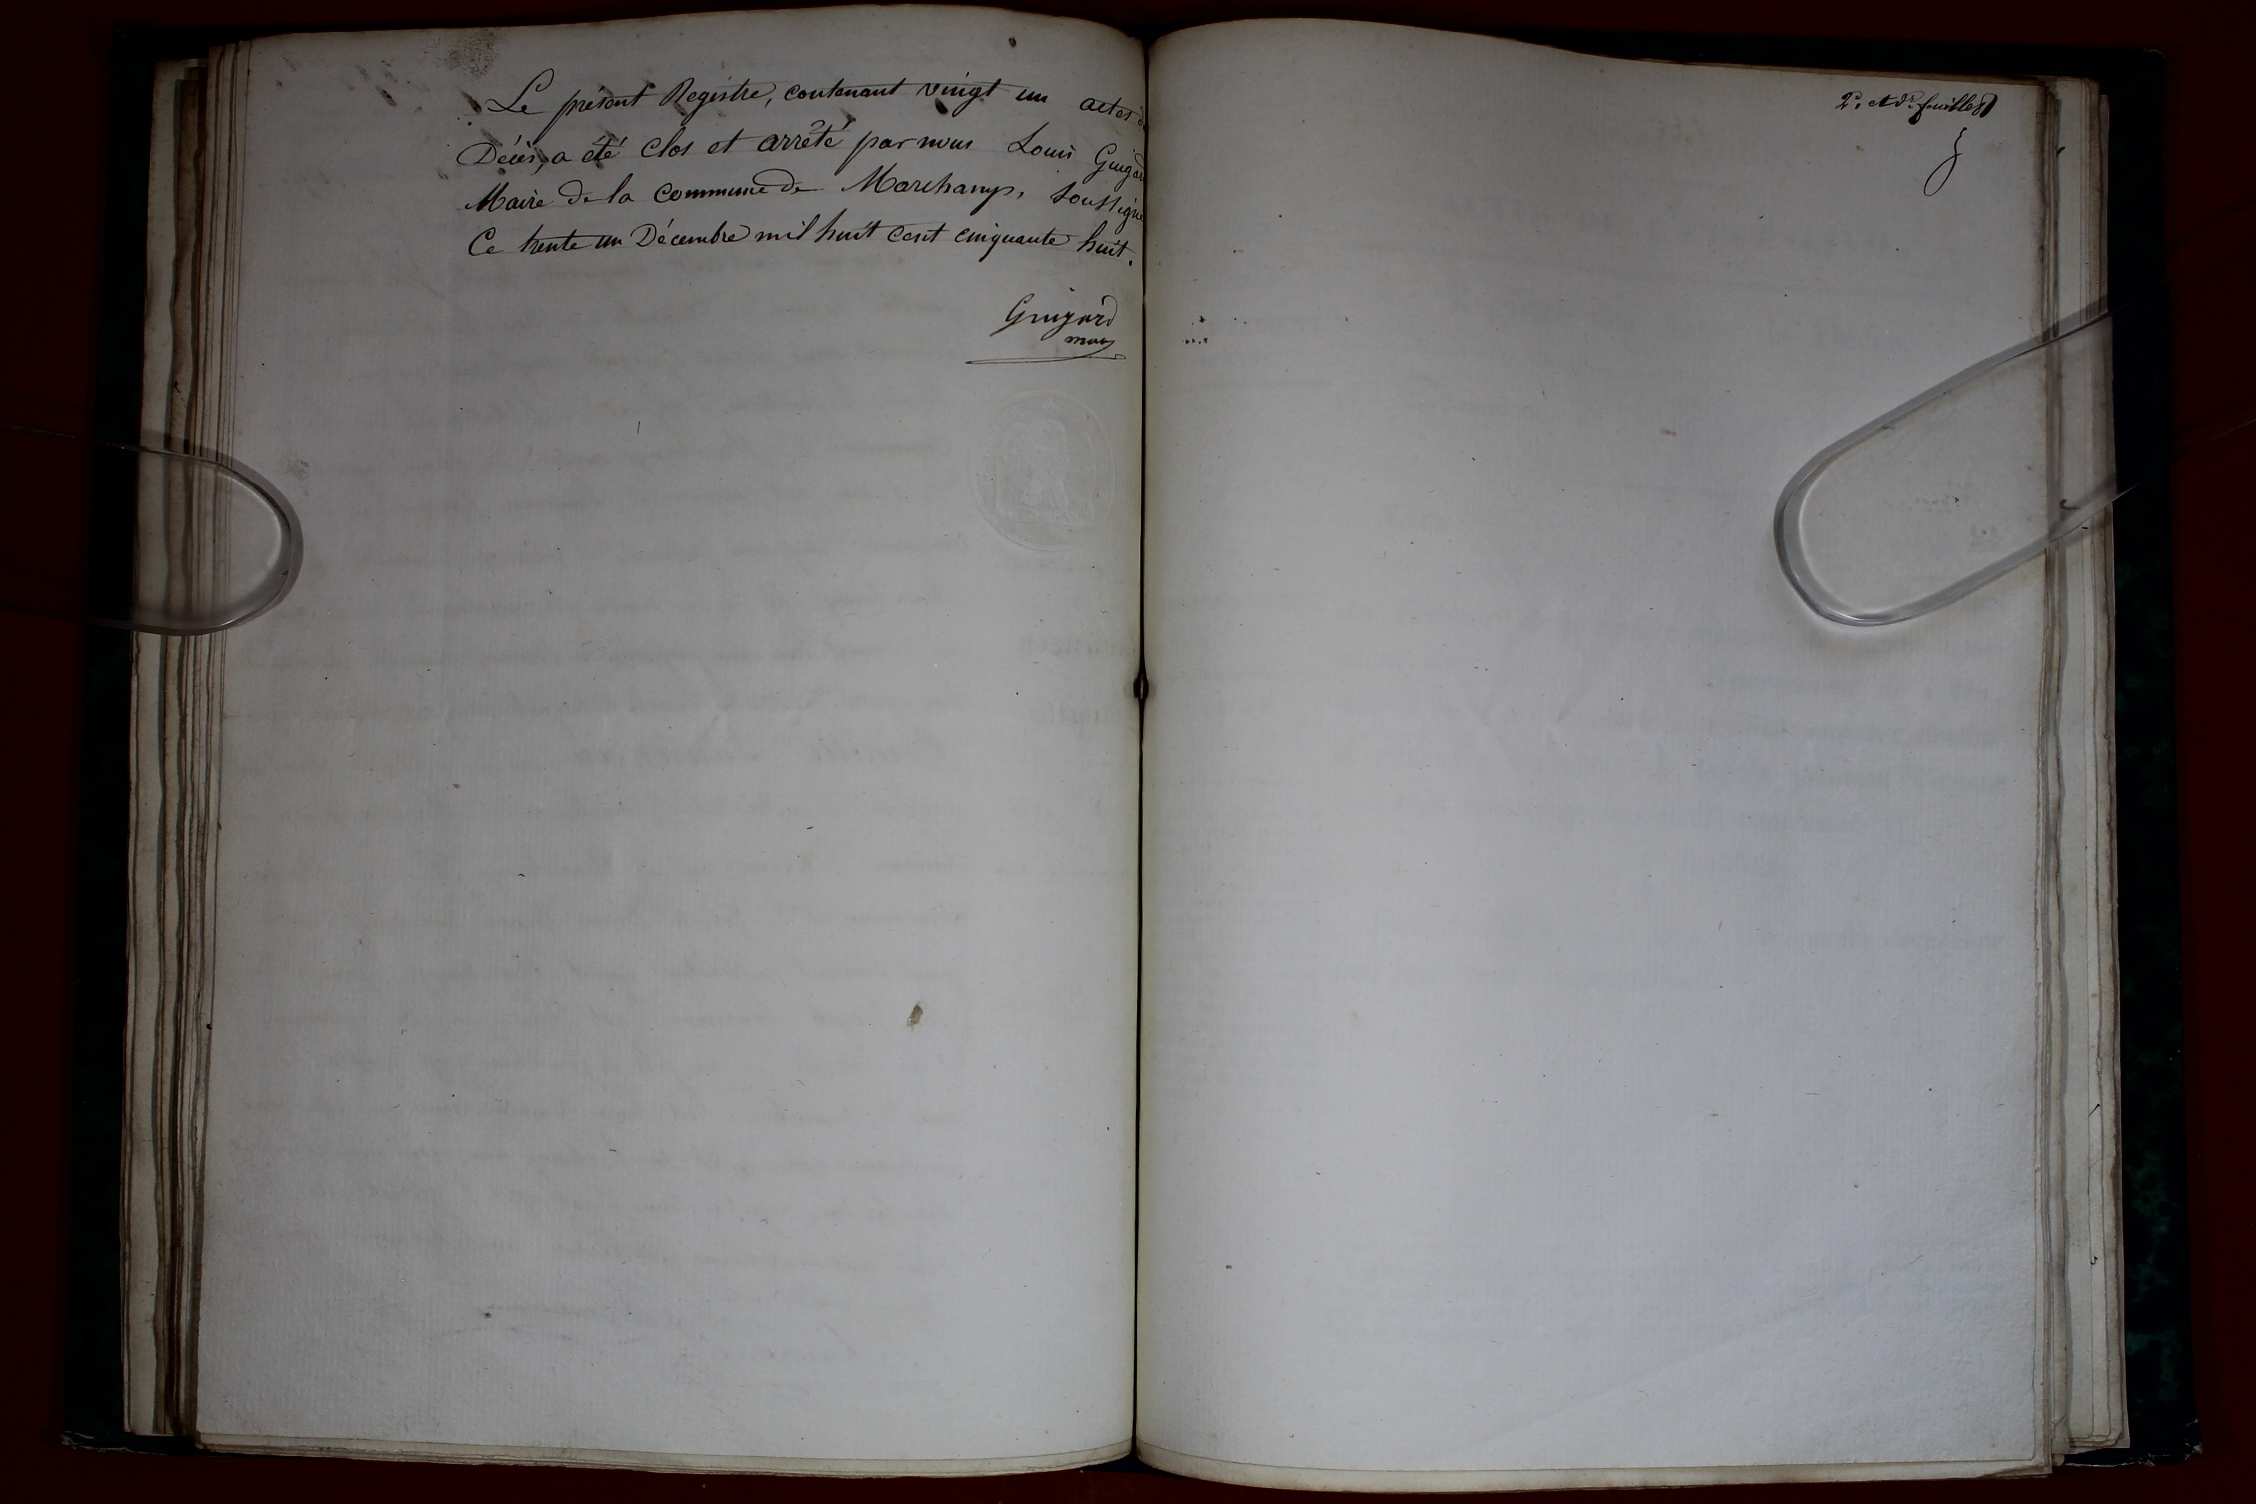 Le présent Registre, contenant vingt un actes de
Décès, a été clos et arrêté par nous Louis Guigard
Maire de la commune de Marchamp, soussigné
Ce trente un Décembre mil huit cent cinquante huit.
Guigard
maire
2e. et dr. feuillet